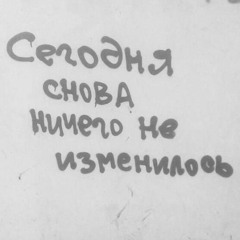 Сегодня
СНОВА
Ничего не
изменилось